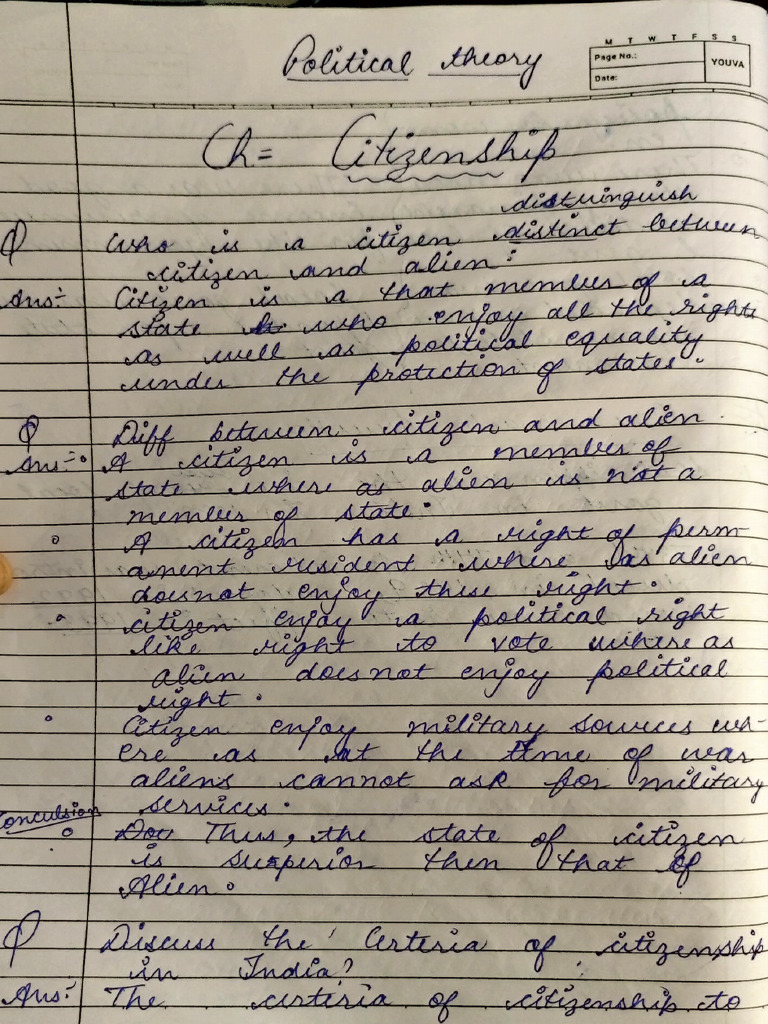 Political theory
M T W T F S S
Page No.:
YOUVA
Date:
Ch= Citizenship
distuinguish
Q who is a citizen distinct between
citizen and alien:
Ans:- Citizen is a that member of a
state who enjoy all the rights
as well as political equality
under the protection of states.
Q Diff between citizen and alien.
Ans:- • A citizen is a member of
state where as alien is not a
member of state.
• A citizen has a right of perm-
anent resident where as alien
doesnot enjoy these right.
• citizen enjoy a political right
like right to vote where as
alien does not enjoy political
right.
• Citizen enjoy military sources wh-
ere as at the time of war
aliens cannot ask for military
services.
Conculsion
• Thus, the state of citizen
is superior then that of
Alien.
Q Discuss the Certeria of citizenship
in India?
Ans:- The certeria of citizenship to